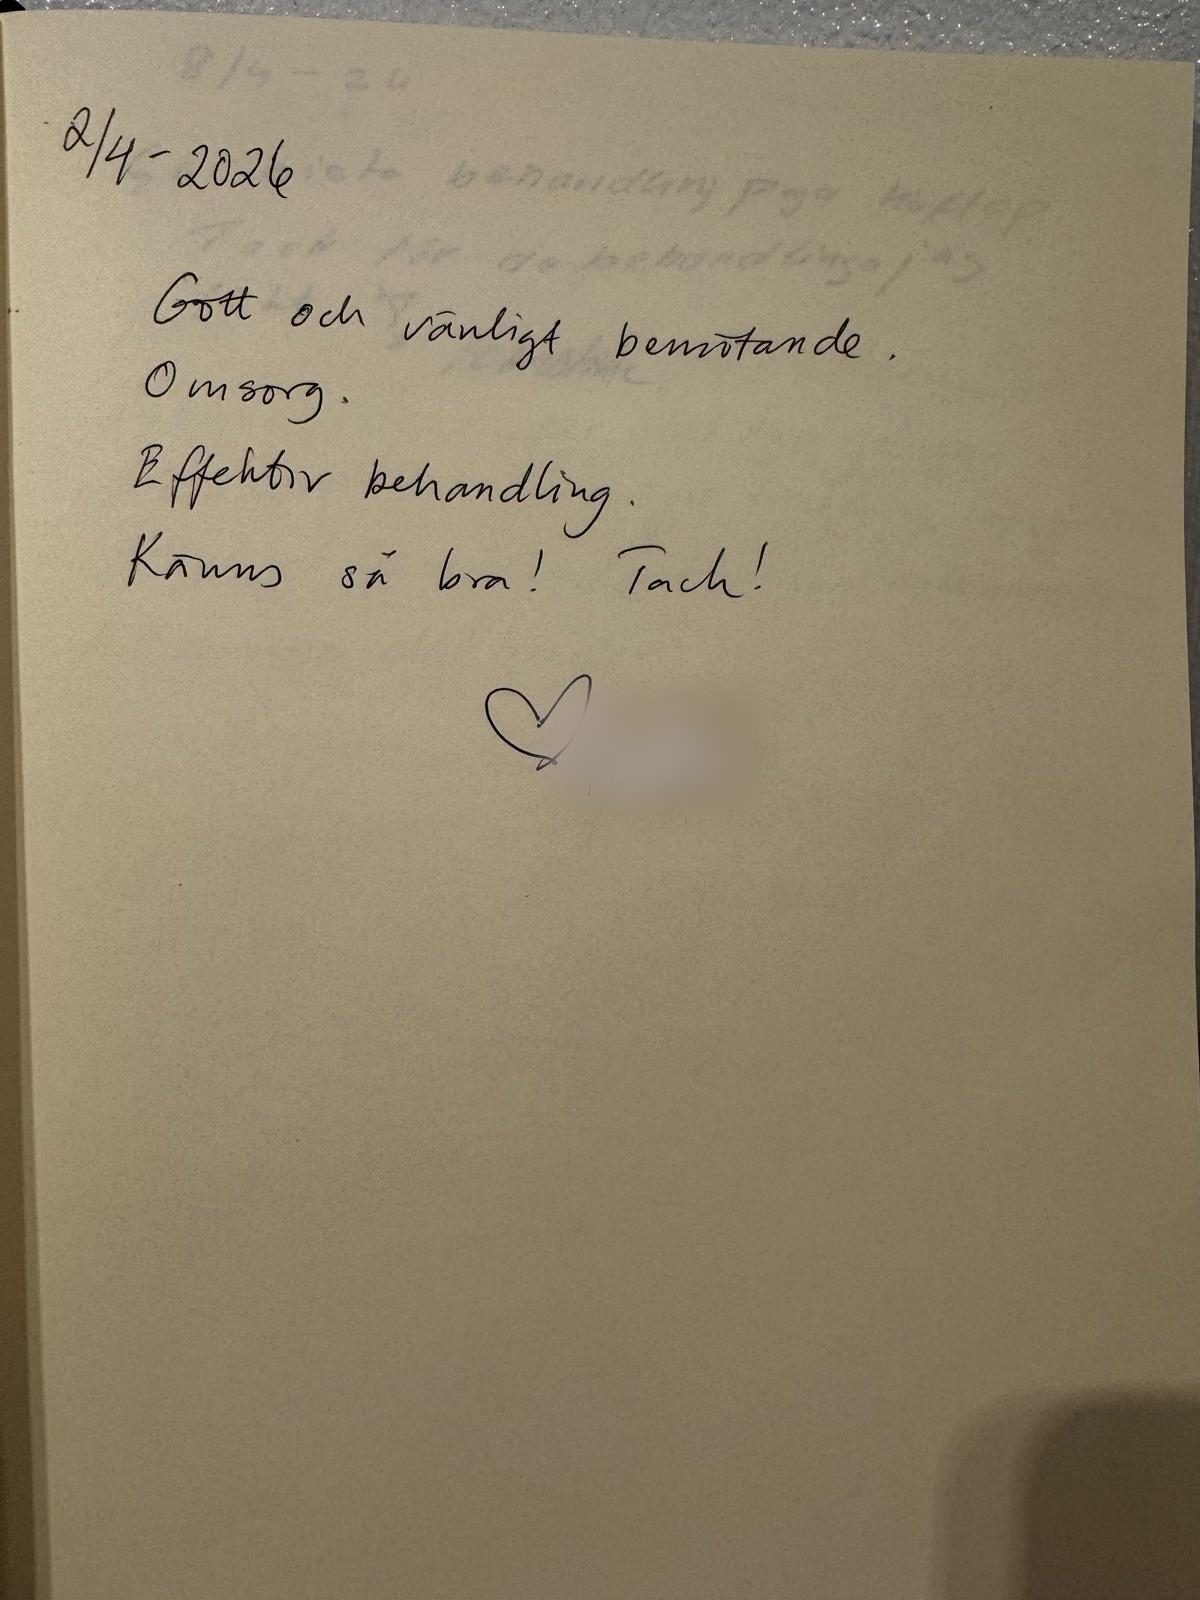 2/4-2026
Gott och vänligt bemötande.
Omsorg.
Effektiv behandling.
Känns så bra! Tack!